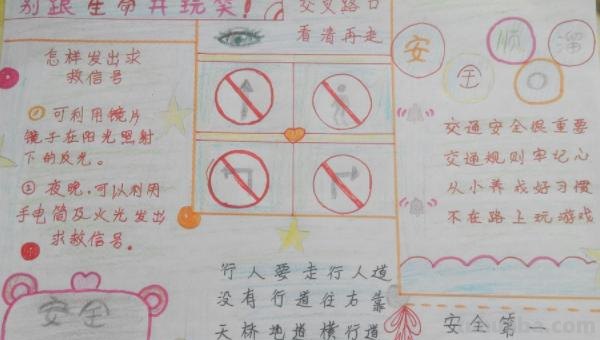 别跟生命开玩笑!
怎样发出求
救信号
①可利用镜片
镜子在阳光照射
下的反光。
②夜晚,可以利用
手电筒及火光发出
求救信号。
安全
交叉路口
看清再走
行人要走行人道
没有行道往右靠
天桥地道横行道
安全顺溜
交通安全很重要
交通规则牢记心
从小养成好习惯
不在路上玩游戏
安全第一